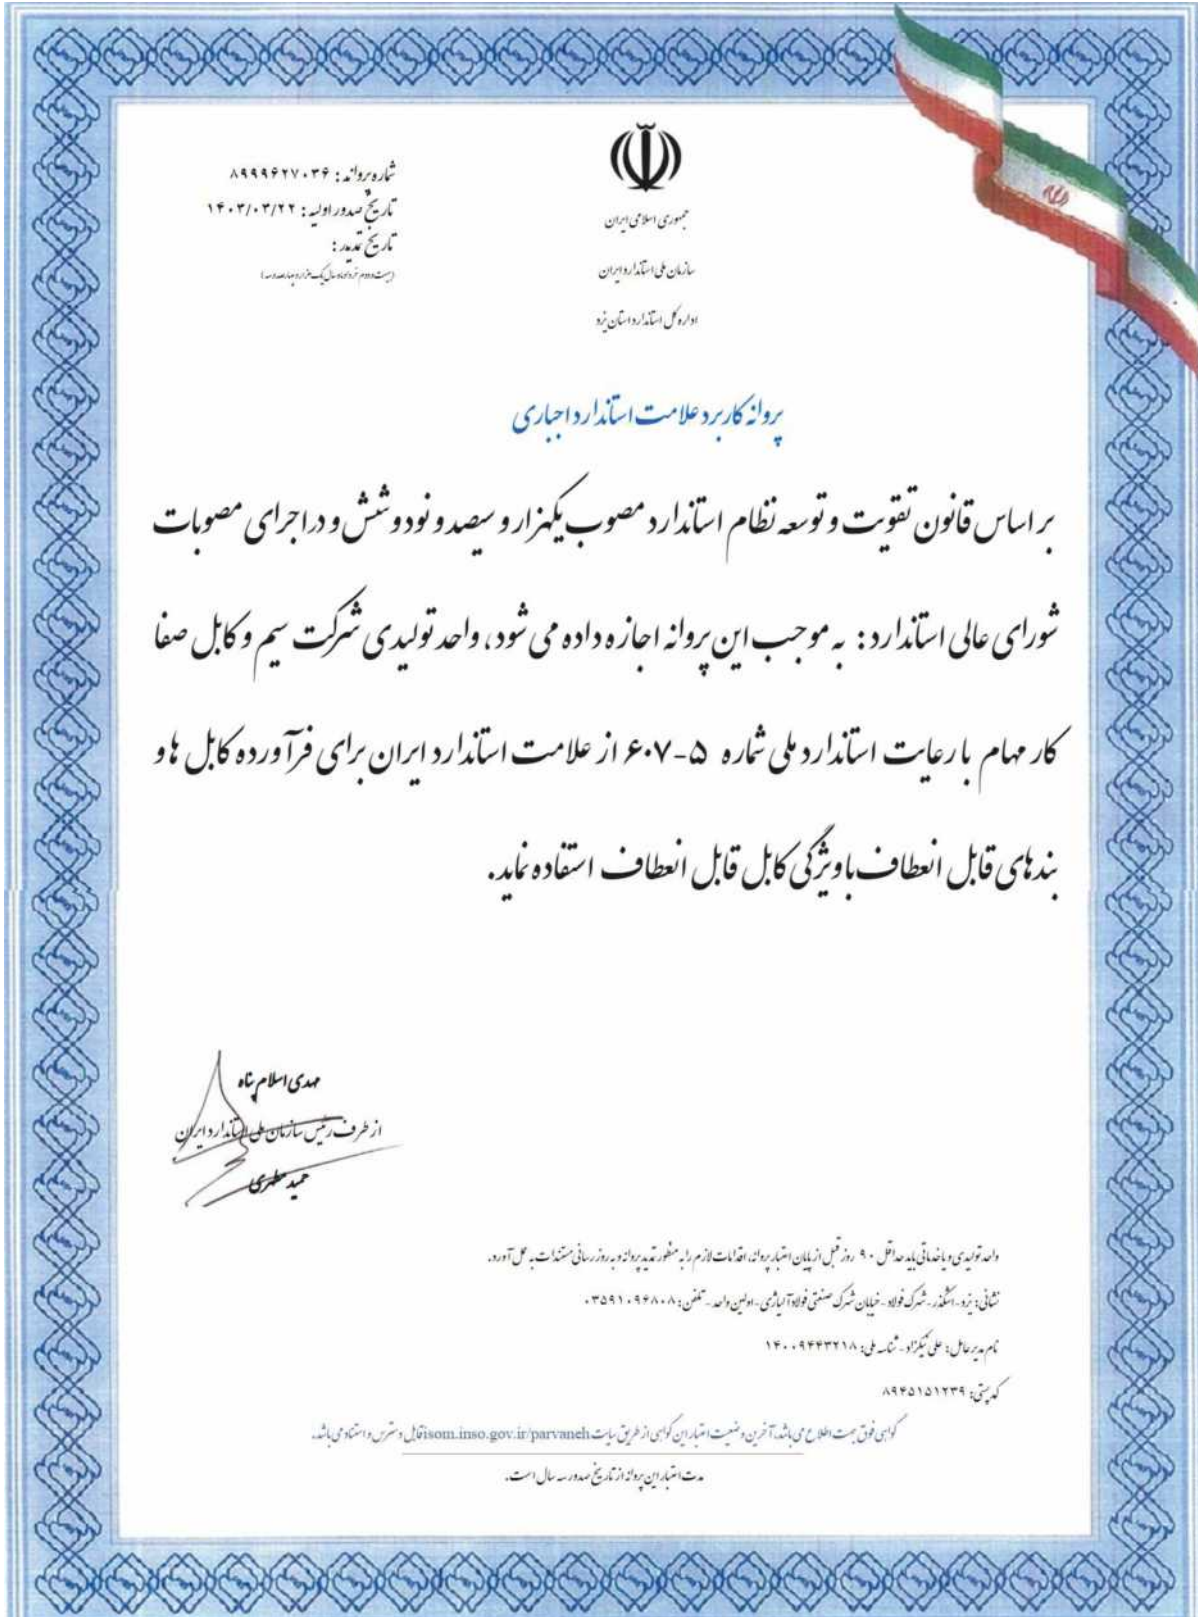 جمهوری اسلامی ایران
سازمان ملی استاندارد ایران
اداره کل استاندارد استان یزد
شماره پروانه : ۸۹۹۹۶۲۷۰۳۶
تاریخ صدور اولیه : ۱۴۰۳/۰۳/۲۲
تاریخ تمدید :
(بیست و دوم خرداد ماه سال یک هزار و چهارصد و سه)
پروانه کاربرد علامت استاندارد اجباری
بر اساس قانون تقویت و توسعه نظام استاندارد مصوب یکهزار و سیصد و نود و شش و در اجرای مصوبات
شورای عالی استاندارد : به موجب این پروانه اجازه داده می شود، واحد تولیدی شرکت سیم و کابل صفا
کار مهام با رعایت استاندارد ملی شماره ۵-۶۰۷ از علامت استاندارد ایران برای فرآورده کابل ها و
بندهای قابل انعطاف با ویژگی کابل قابل انعطاف استفاده نماید.
مهدی اسلام پناه
از طرف رئیس سازمان ملی استاندارد ایران
حمید مطهری
واحد تولیدی و یا خدماتی باید حداقل ۹۰ روز قبل از پایان اعتبار پروانه، اقدامات لازم را به منظور تمدید پروانه و به روز رسانی مستندات به عمل آورد.
نشانی: یزد - اشکذر - شهرک فولاد - خیابان شهرک صنعتی فولاد آلیاژی - اولین واحد - تلفن: ۰۳۵۹۱۰۹۶۸۰۸
نام مدیرعامل: علی نیکزاد - شناسه ملی: ۱۴۰۰۹۴۴۳۲۱۸
کد پستی: ۸۹۴۵۱۵۱۲۳۹
گواهی فوق جهت اطلاع می باشد، آخرین وضعیت اعتبار این گواهی از طریق سایت isom.inso.gov.ir/parvaneh قابل دسترس و استناد می باشد.
مدت اعتبار این پروانه از تاریخ صدور سه سال است.